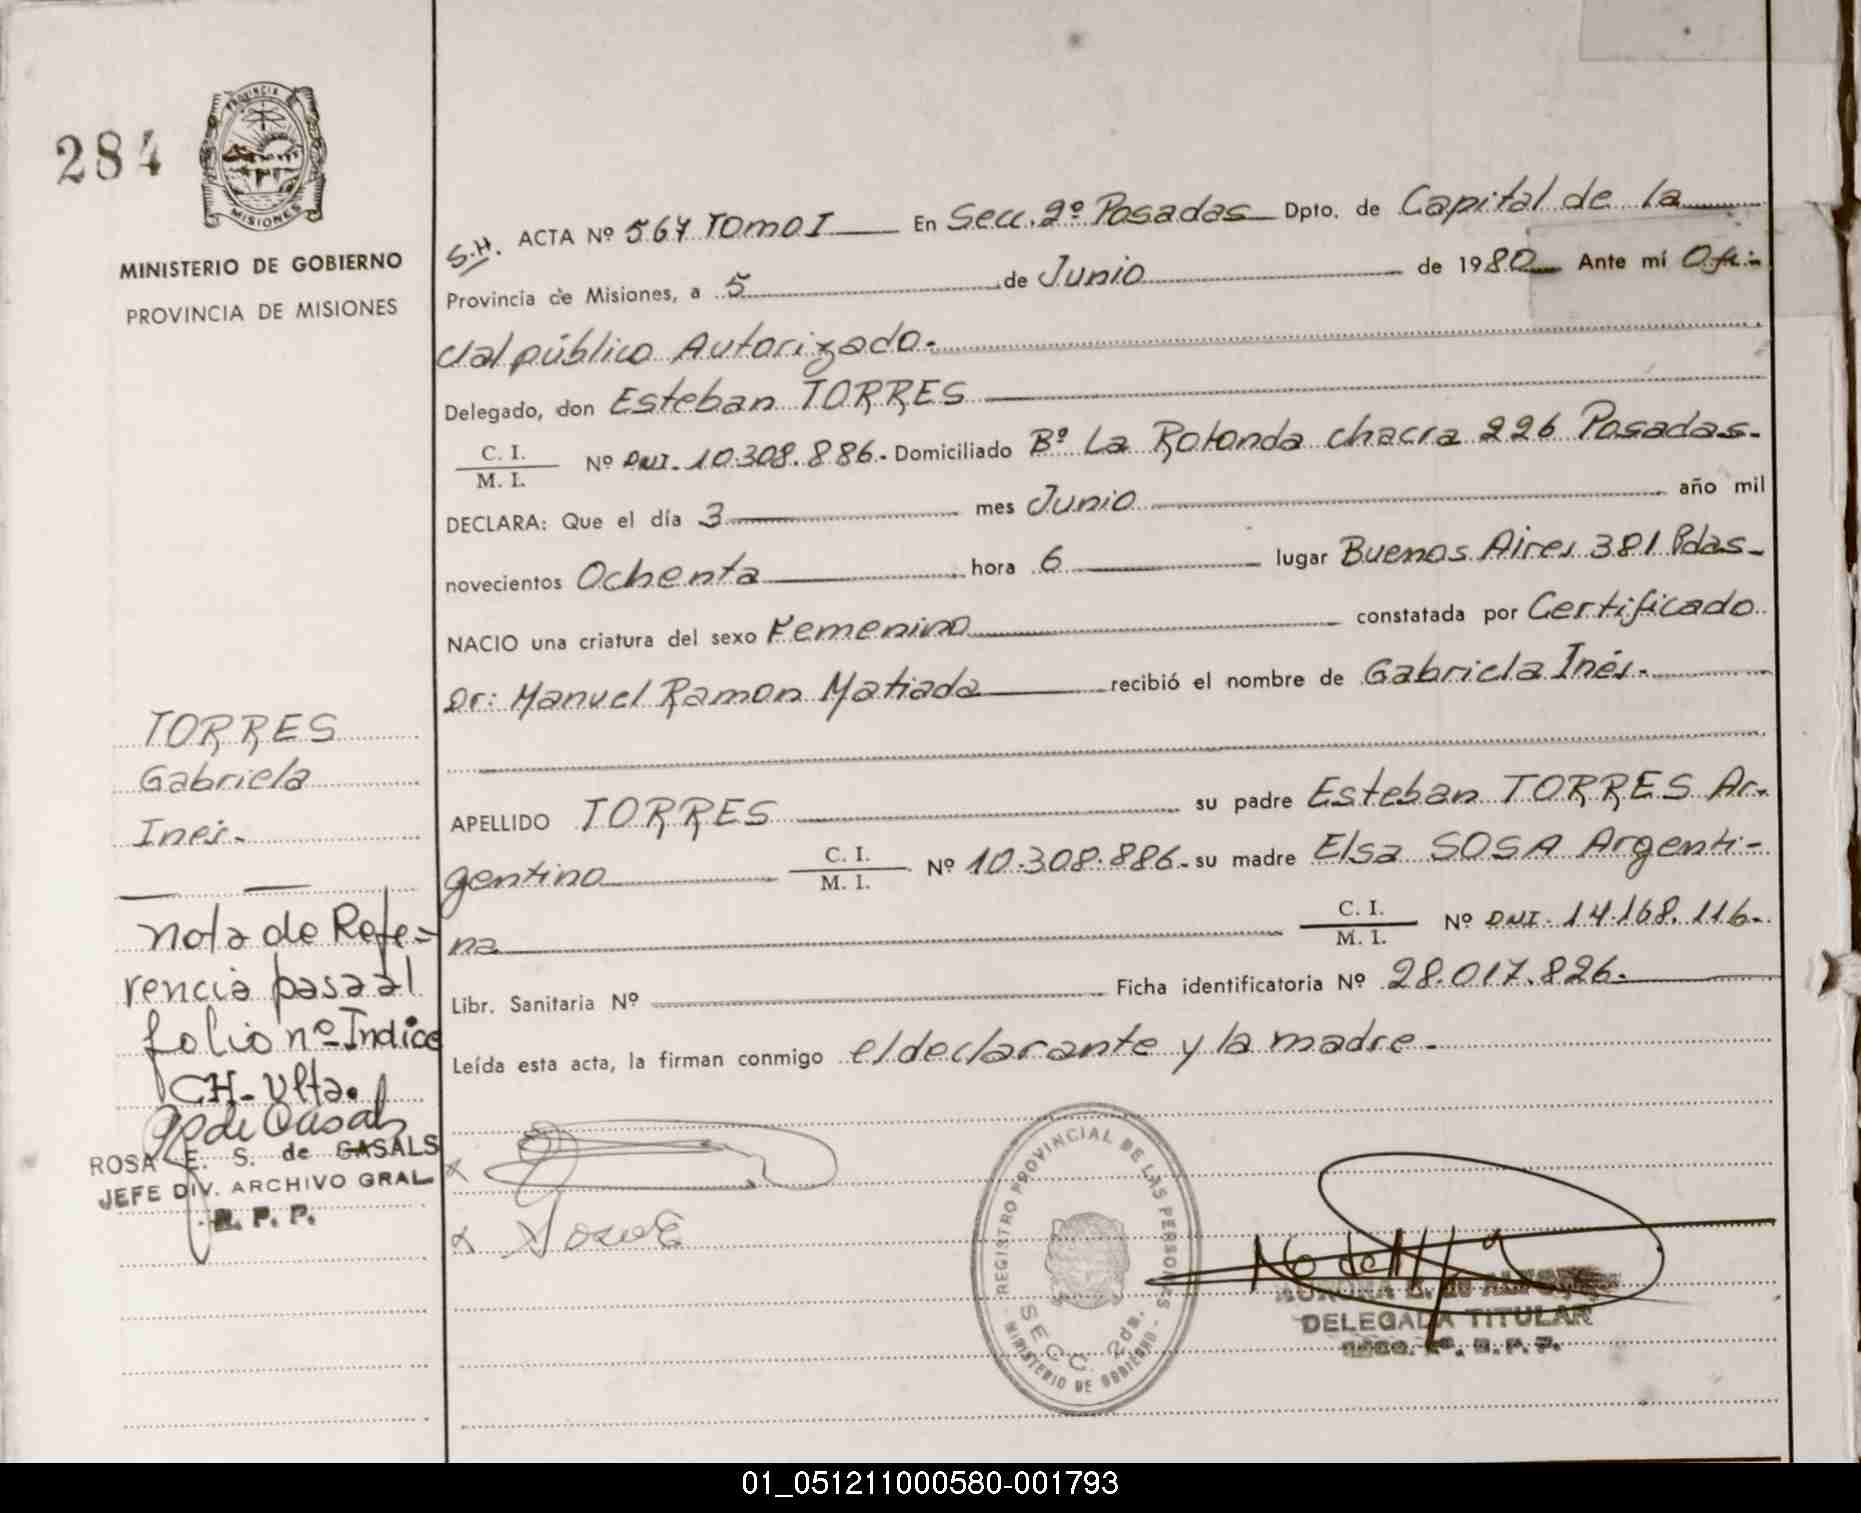 284
PROVINCIA
MISIONES
MINISTERIO DE GOBIERNO
PROVINCIA DE MISIONES
S.H. ACTA Nº 567 TOMO I En Secc. 2º Posadas Dpto. de Capital de la
Provincia de Misiones, a 5 de Junio de 1980 Ante mí Ofi-
cial público Autorizado.
Delegado, don Esteban TORRES
C. I.
M. I. Nº DNI. 10.308.886. Domiciliado Bº La Rotonda chacra 226 Posadas.
DECLARA: Que el día 3 mes Junio año mil
novecientos Ochenta hora 6 lugar Buenos Aires 381 Pdas.
NACIO una criatura del sexo Femenino constatada por Certificado
Dr: Manuel Ramon Matiada recibió el nombre de Gabriela Inés.
APELLIDO TORRES su padre Esteban TORRES Ar-
gentino C. I.
M. I. Nº 10.308.886. su madre Elsa SOSA Argenti-
na C. I.
M. I. Nº DNI. 14.168.116.
Libr. Sanitaria Nº Ficha identificatoria Nº 28.017.826.
Leída esta acta, la firman conmigo el declarante y la madre.
TORRES
Gabriela
Inés.
Nota de Refe-
rencia pasa al
folio nº Indice
CH. Ulta.
ROSA E. S. de CASALS
JEFE DIV. ARCHIVO GRAL
R. P. P.
REGISTRO PROVINCIAL DE LAS PERSONAS
SECC. 2da.
MINISTERIO DE GOBIERNO
DELEGADA TITULAR
R. P. P.
01_051211000580-001793